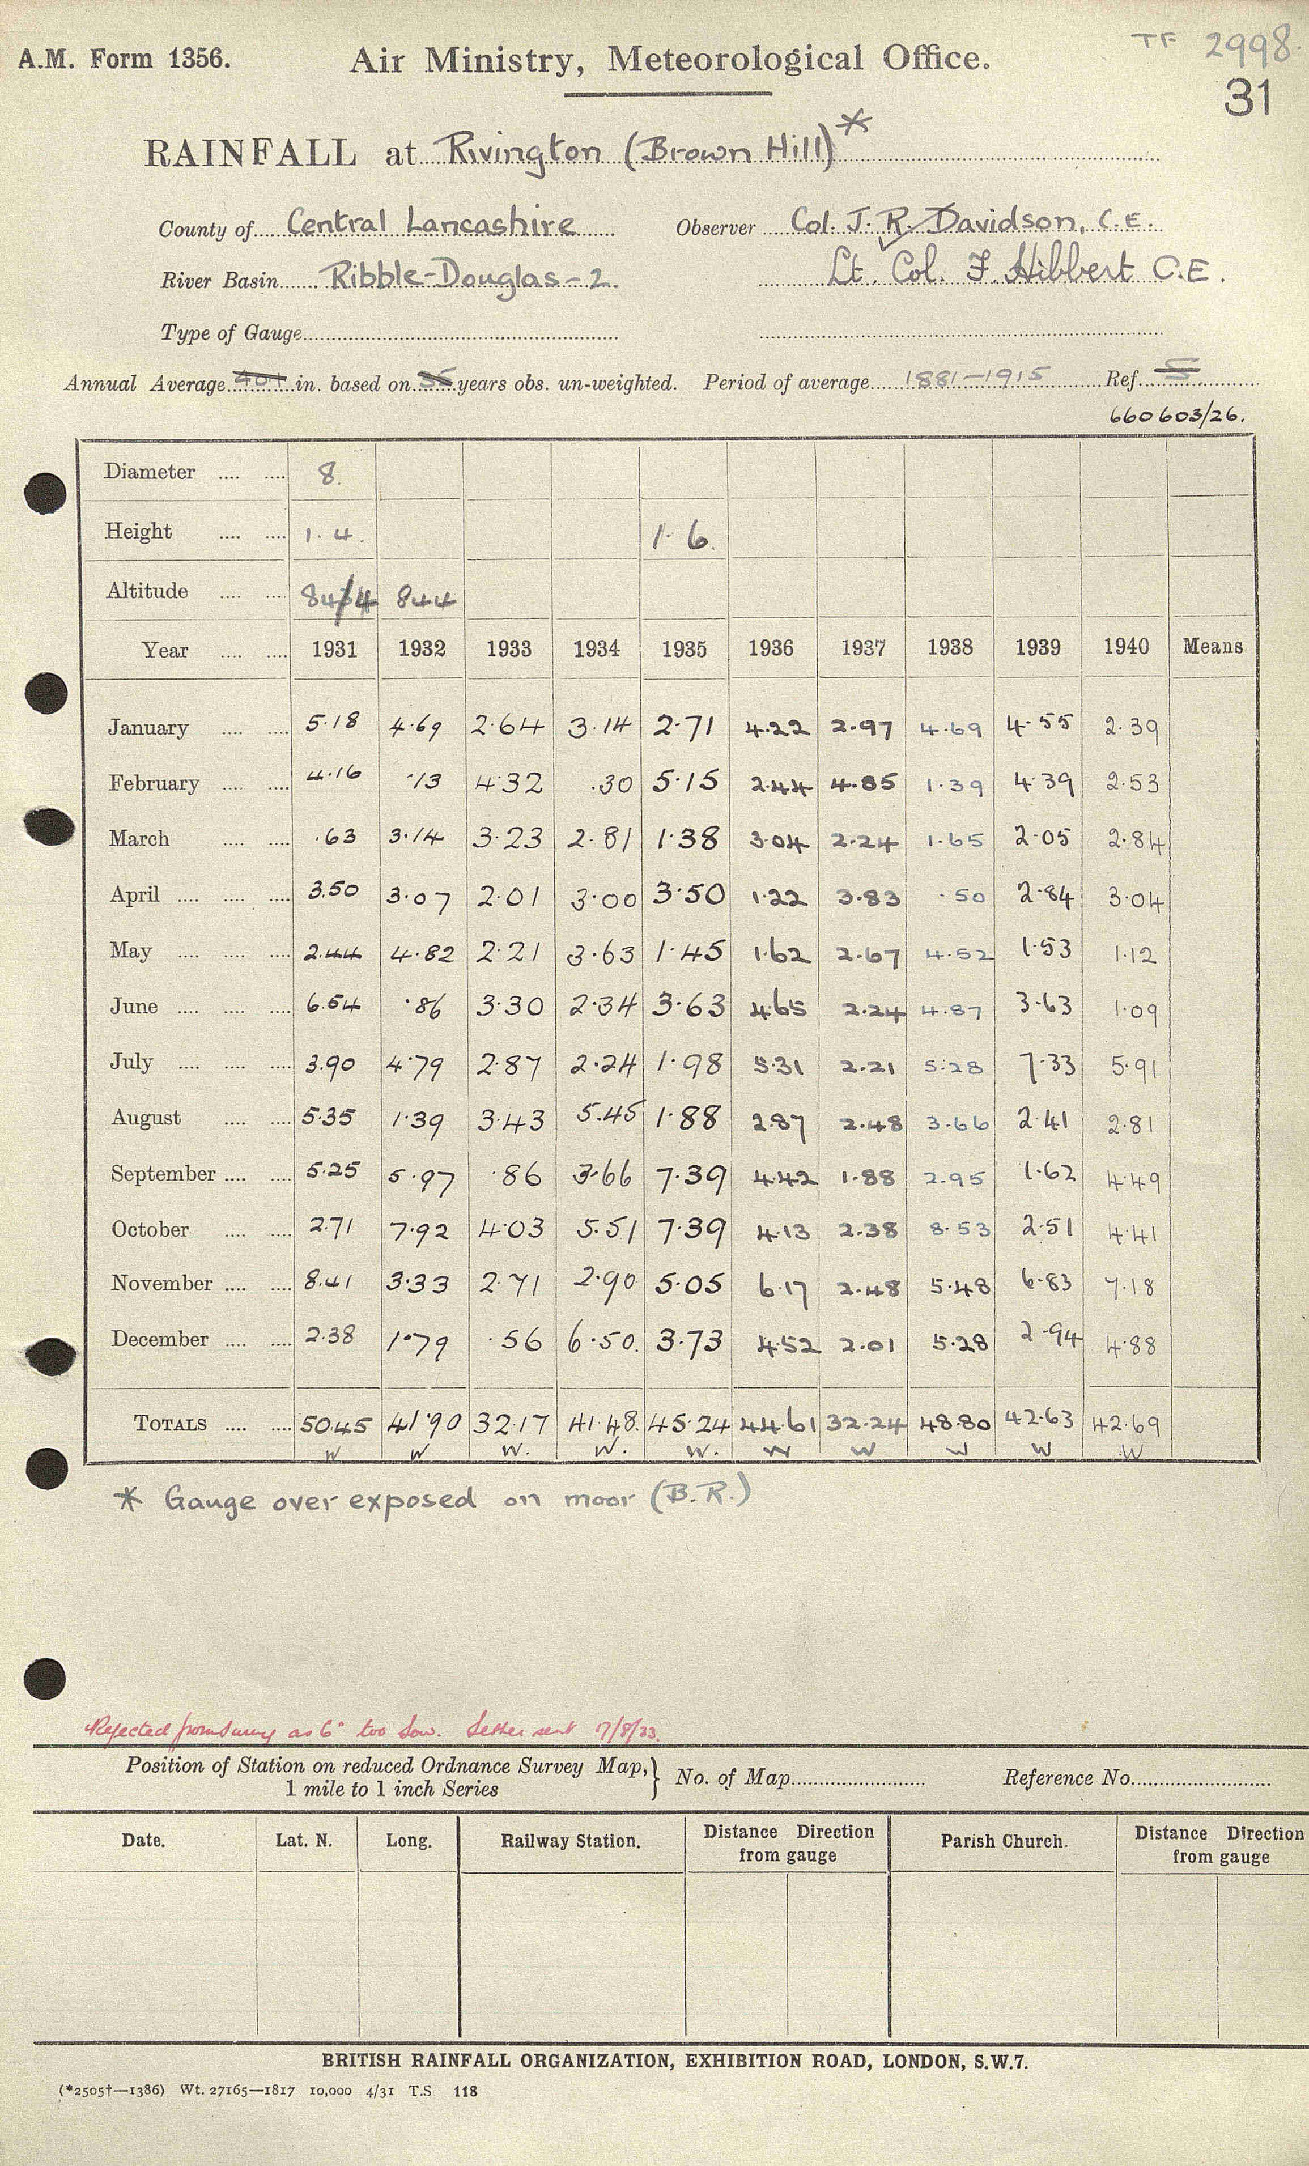 TF 2998.
A.M. Form 1356.
Air Ministry, Meteorological Office.
31
RAINFALL at Rivington (Brown Hill)*
County of Central Lancashire Observer Col. J. R. Davidson, C.E.
River Basin Ribble-Douglas-2. Lt. Col. F. Hibbert C.E.
Type of Gauge
Annual Average in. based on 35 years obs. un-weighted. Period of average 1881-1915 Ref. 5
660603/26.
Diameter 8.
Height 1.4. 1.6.
Altitude 844
Year 1931 1932 1933 1934 1935 1936 1937 1938 1939 1940 Means
January 5.18 4.69 2.64 3.14 2.71 4.22 2.97 4.69 4.55 2.39
February 4.16 .13 4.32 .30 5.15 2.44 4.85 1.39 4.39 2.53
March .63 3.14 3.23 2.81 1.38 3.04 2.24 1.65 2.05 2.84
April 3.50 3.07 2.01 3.00 3.50 1.22 3.83 .50 2.84 3.04
May 2.44 4.82 2.21 3.63 1.45 1.62 2.67 4.52 1.53 1.12
June 6.54 .86 3.30 2.34 3.63 4.65 2.24 4.87 3.63 1.09
July 3.90 4.79 2.87 2.24 1.98 5.31 2.21 5.28 7.33 5.91
August 5.35 1.39 3.43 5.45 1.88 2.87 2.48 3.66 2.41 2.81
September 5.25 5.97 .86 3.66 7.39 4.42 1.88 2.95 1.62 4.49
October 2.71 7.92 4.03 5.51 7.39 4.13 2.38 8.53 2.51 4.41
November 8.41 3.33 2.71 2.90 5.05 6.17 2.48 5.48 6.83 7.18
December 2.38 1.79 .56 6.50. 3.73 4.52 2.01 5.28 2.94 4.88
TOTALS 50.45 41.90 32.17 41.48. 45.24 44.61 32.24 48.80 42.63 42.69
W W W. W. W. W W W W W
* Gauge over exposed on moor (B.R.)
Rejected from Survey as 6" too low. Letter sent 7/8/33.
Position of Station on reduced Ordnance Survey Map, } No. of Map Reference No.
1 mile to 1 inch Series
Date. Lat. N. Long. Railway Station. Distance Direction from gauge Parish Church. Distance Direction from gauge
BRITISH RAINFALL ORGANIZATION, EXHIBITION ROAD, LONDON, S.W.7.
(*2505†—1386) Wt. 27165—1817 10,000 4/31 T.S 118